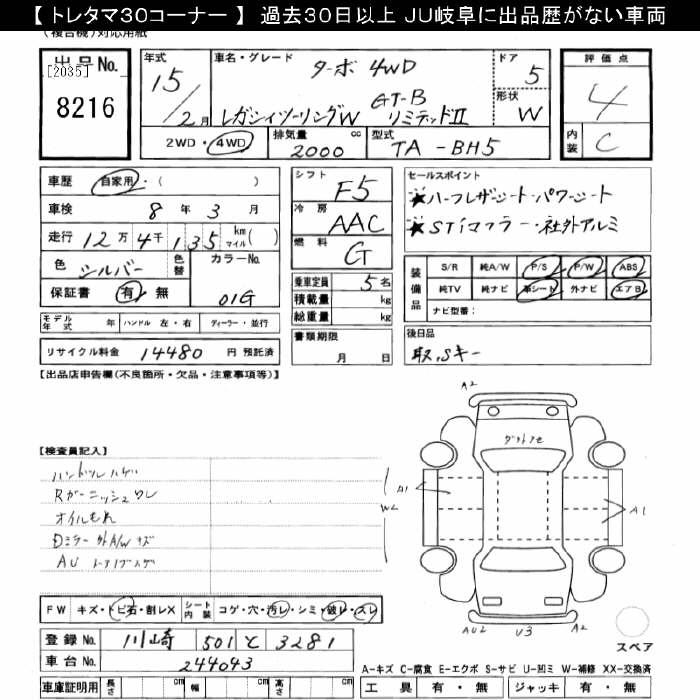 【 トレタマ30コーナー 】 過去30日以上 JU岐阜に出品歴がない車両
(複合機)対応用紙
出品No.
[2035]
8216
年式
15
2月
車名・グレード
ターボ 4WD
レガシィツーリングW
GT-B
リミテッドII
ドア
5
形状
W
評価点
4
内装
C
2WD・4WD
排気量
2000 cc
型式
TA-BH5
車歴 自家用・( )
車検 8年3月
走行 12万4千135 km マイル( )
色 シルバー 色替
カラーNo.
01G
保証書 有・無
シフト F5
冷房 AAC
燃料 G
乗車定員 5名
積載量 kg
総重量 kg
セールスポイント
★ハーフレザーシート・パワーシート
★STiマフラー・社外アルミ
装備品
S/R 純A/W P/S P/W ABS
純TV 純ナビ 革シート 外ナビ エアB
ナビ型番:
モデル年式 年 ハンドル 左・右 ディーラー・並行
リサイクル料金 14480 円 預託済
書類期限
月 日
後日品
取,Sキー
【出品店申告欄(不良箇所・欠品・注意事項等)】
【検査員記入】
Rガーニッシュワレ
オイルもれ
Dミラー 外A/W キズ
A2
A1
W2
A1
AU2 U3 A2
スペア
FW キズ・トビ石・割レX シート内装 コゲ・穴・汚レ・シミ・破レ・スレ
登録No. 川崎 501 と 3281
車台No. 244043
車庫証明用 長さ cm 幅 cm 高さ cm
A-キズ C-腐食 E-エクボ S-サビ U-凹ミ W-補修 XX-交換済
工具 有・無 ジャッキ 有・無